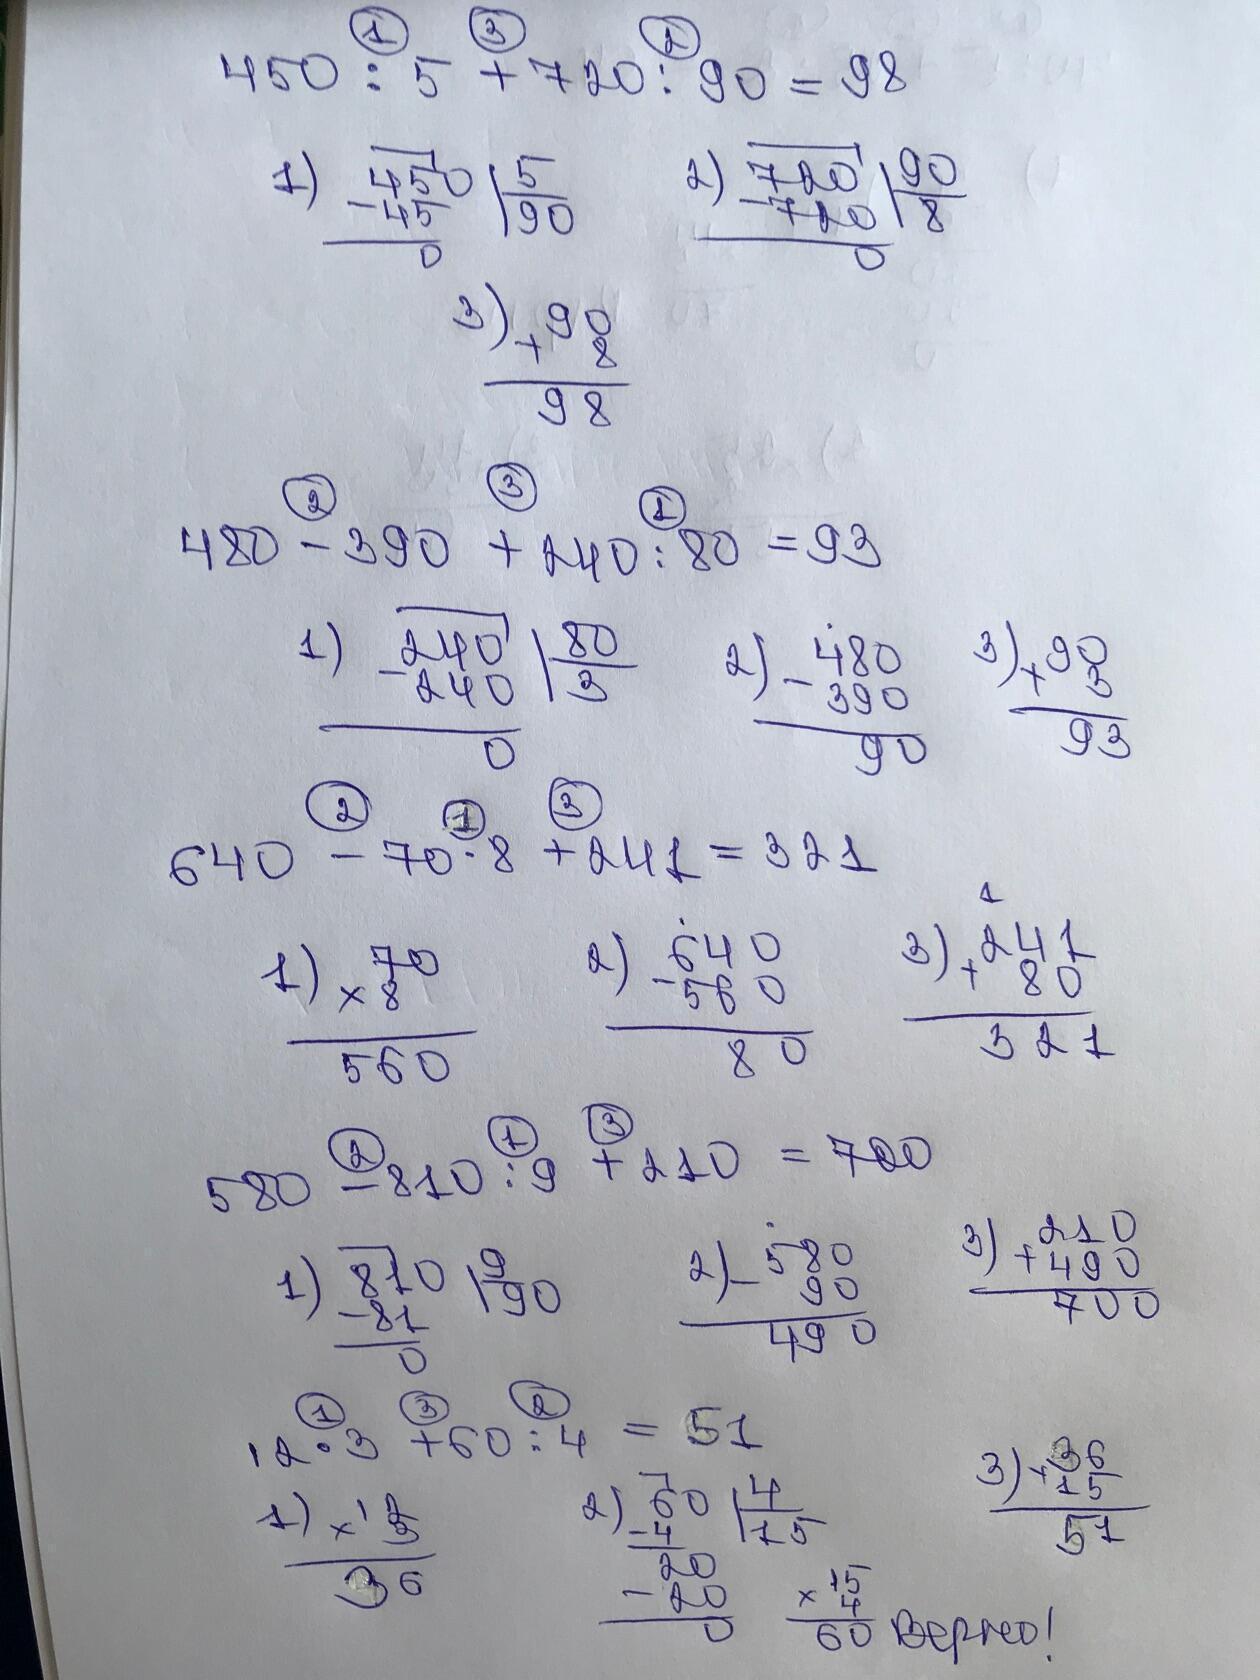 ① ③ 2
450 : 5 + 720 : 90 = 98
1) 450 5 2) 720 90
- 45 90 - 720 8
0 0
3) 90
+ 8
98
② ③ ①
480 - 390 + 240 : 80 = 93
1) 240 80 2) 480 3) 90
- 240 3 - 390 + 3
0 90 93
② ① ③
640 - 70 · 8 + 241 = 321
1
1) 70 2) 640 3) 241
× 8 - 560 + 80
560 80 321
② ① ③
580 - 810 : 9 + 210 = 700
1) 810 9 2) 580 3) 210
- 81 90 - 90 + 490
0 490 700
① ③ ②
12 · 3 + 60 : 4 = 51
1) 12 2) 60 4 3) 36
× 3 - 4 15 + 15
36 20 51
- 20 15
0 × 4
60 Верно!